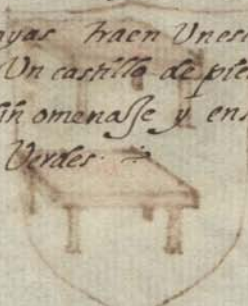 ayas traen Unesc
Un castillo de pie
sin omenasse y ens
Verdes.